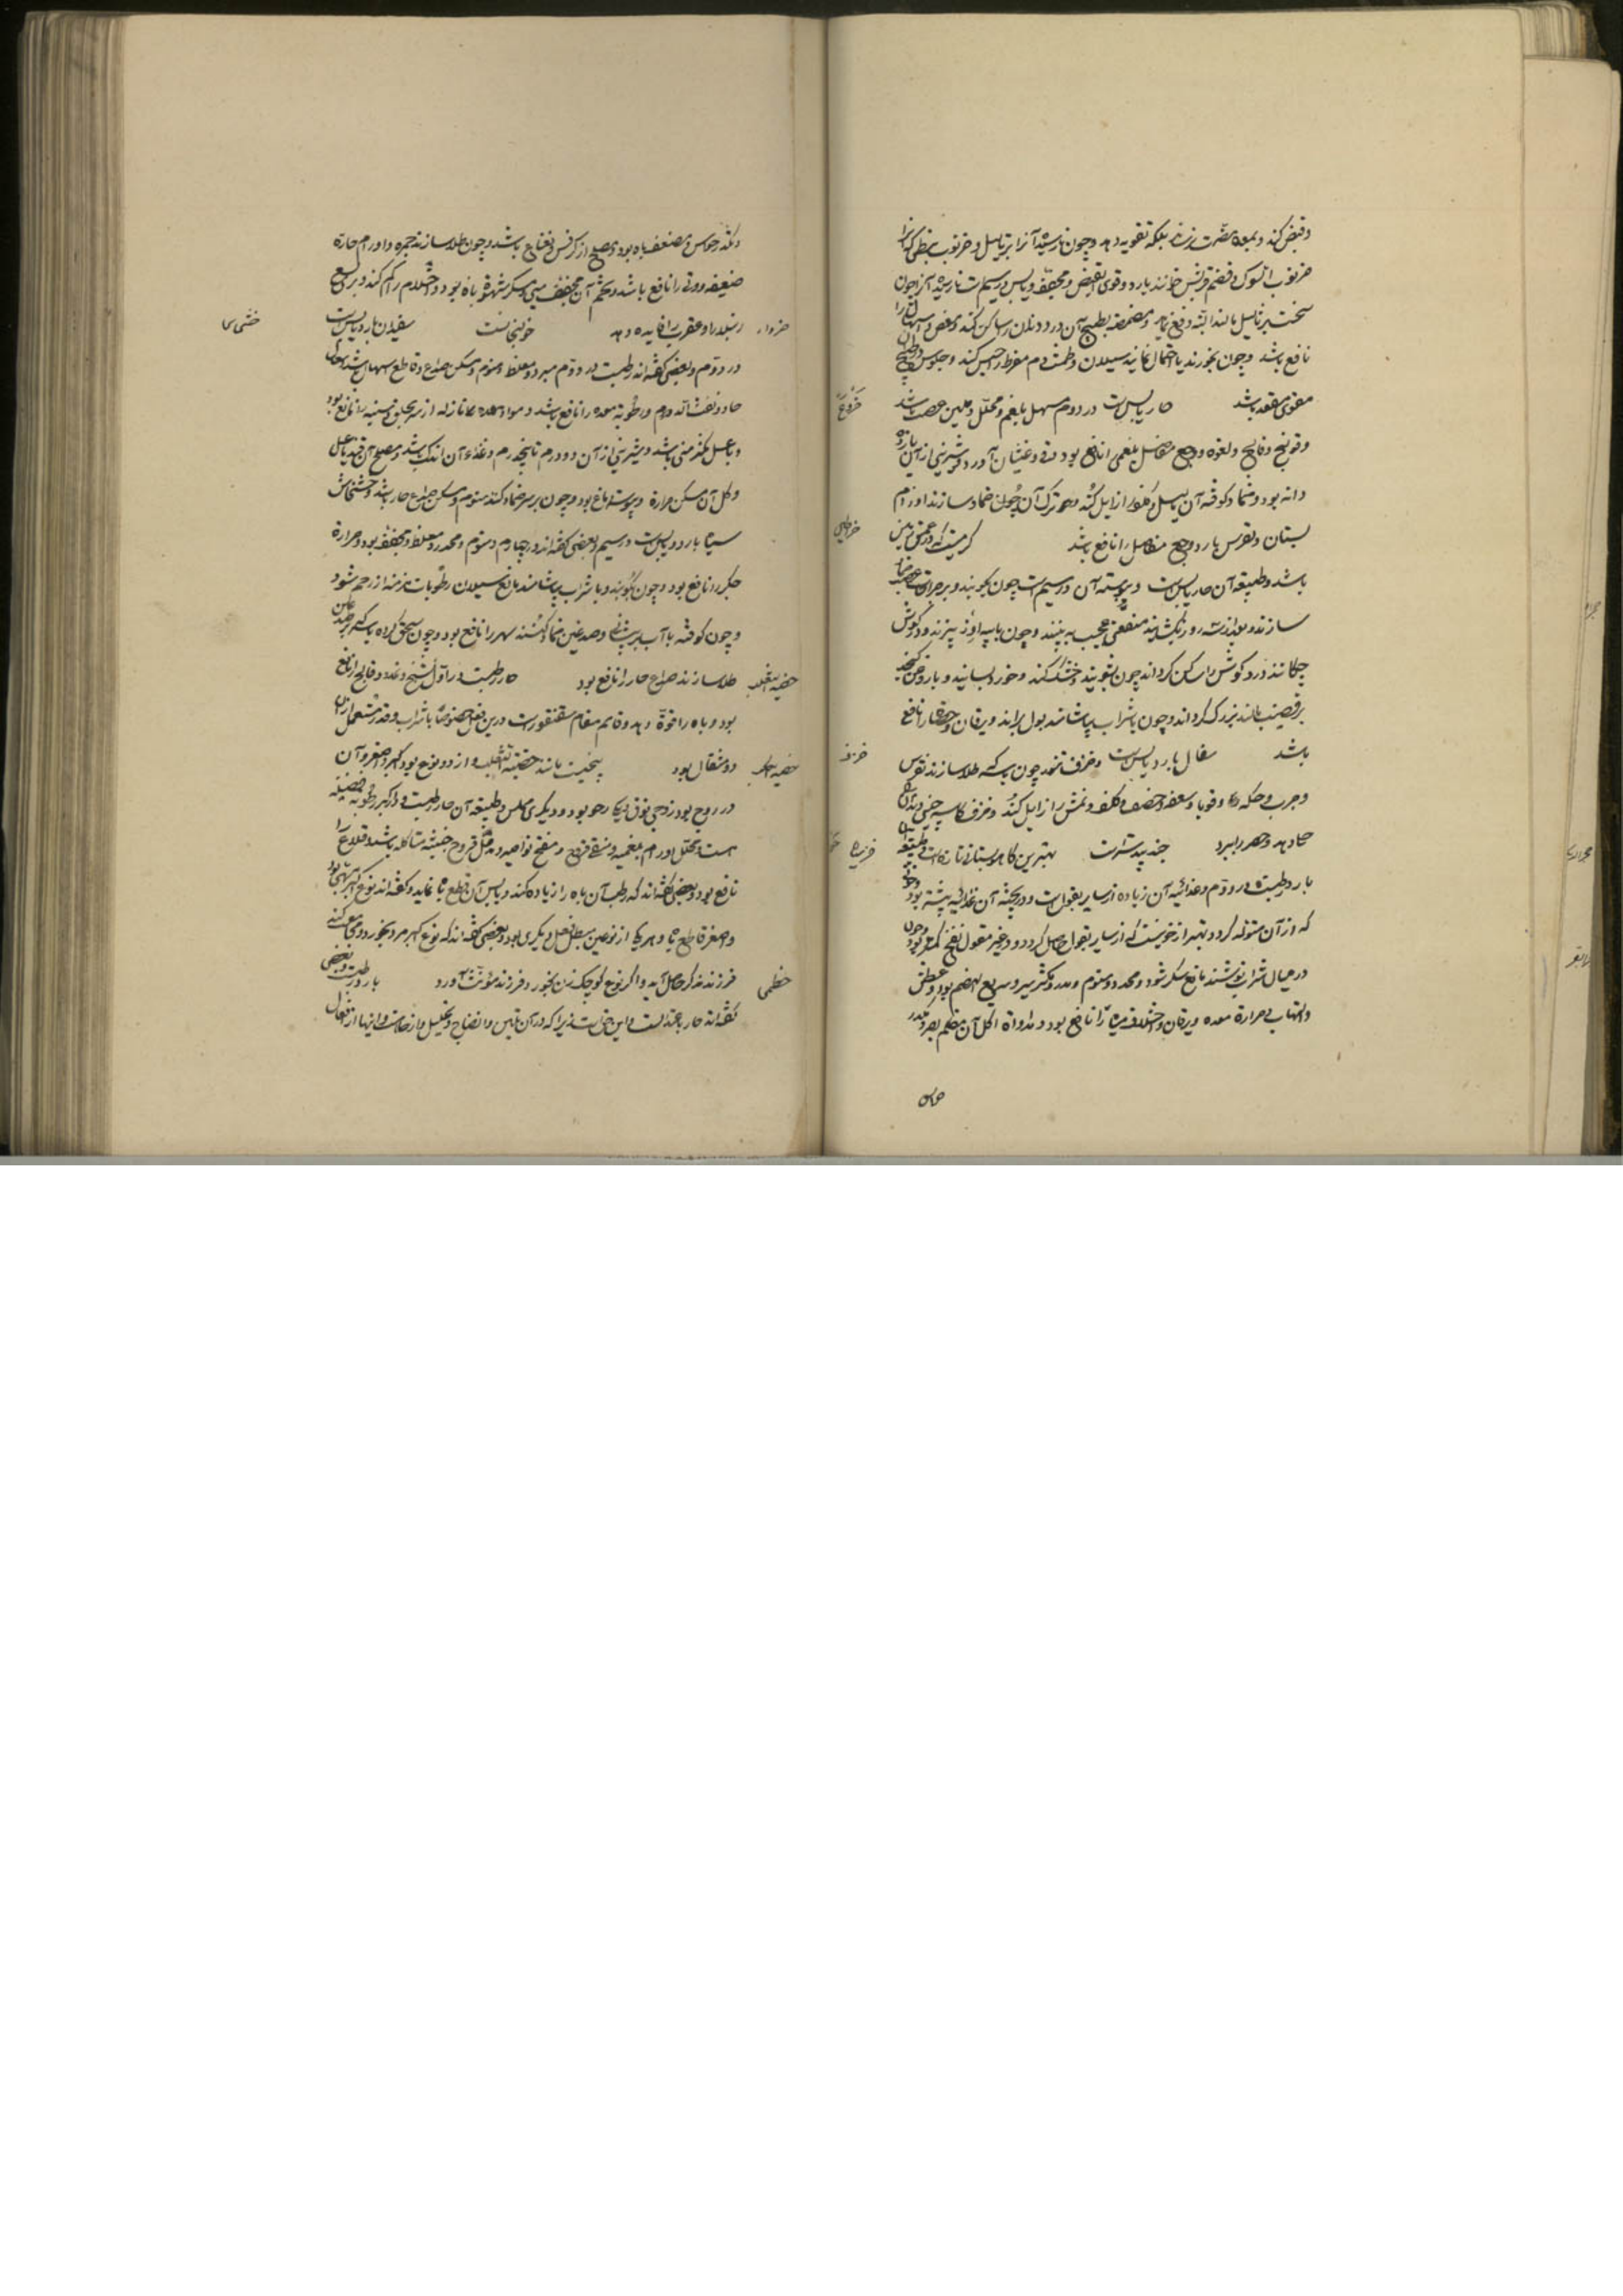 وقبض کند و بمعده مضرت نرساند بلکه تقویه دهد و چون نارسیده آنرا بر ثالیل و خرنوب نبطی که آنرا
خرنوب الشوک و قضم قریش خوانند بارد و قوی القبض و مجفف و یابس در سیم است نارسیده آنرا چون
سخت بر ثالیل بمالند البته دفع نماید و مضمضه بطبیخ آن درد دندان را ساکن کند و مغص و اسهال را
نافع باشد و چون بخورند یا احتمال نمایند سیلان و طمث دم مفرط را حبس کند و جلوس در طبیخ
مقوی مقعد باشد حار یابس است در دوم مسهل بلغم و محلل و ملین عصب باشد
خروع
و قولنج و فالج و لقوه و وجع مفاصل بلغمی را نافع بود و قی و غثیان آورد و شربتی از آن یازده
دانه بود و ضماد کوفته آن ثالیل و کلف را زایل کند و ترک آن چون ضماد سازند اورام
پستان و نقرس بارد و وجع مفاصل را نافع باشد کرمیست که در عمق زمین
خراطین
باشد و طبیعه آن حار یابس است در سیم است چون بکوبند و بر جراحت عصب ضماد
سازند و بعد از سه روز بگشایند منفعتی عجیب به بینند و چون با پیه اوز بپزند و در گوش
چکانند درد گوش را ساکن گرداند چون بشویند و خشک کنند و خورد بسایند و با روغن کنجد
بر قضیب مالند بزرگ گرداند و چون با شراب بیاشامند بول براند و یرقان و حصاة را نافع
باشد سفال بارد یابس است و خزف تنور چون بسرکه طلا سازند نقرس
خزف
و جرب و حکه و قوبا و سعفه و حصف و کلف و نمش را زایل کند و خزف کاسه چینی دندان را
جلا دهد و بصر را بهتر سازد جندبیدسترست بهترین کاهو بستانی تازه است و طبیعة
بارد رطبست در دوم و غذائیة آن زیاده از سایر بقول است و در پخته آن غذائیه بیشتر بود
که از آن متولد گردد بهتر از خونیست که از سایر بقول حاصل گردد و غیر مغسول نفخ کمتر بود و چون
در میان شراب نوشند مانع سکر شود و مخدر و منوم و مدر و مکثر شیر و سریع الهضم بود و عطش
و التهاب و حرارة معده و یرقان و اختلاف میاه را نافع بود و مداواة اکل آن مظلم بصر و مکدر
حواس
مکدر حواس و مضعف باه بود و مصلح آن کرفس و نعناع باشد و چون طلا سازند جمره و اورام حاره
ضعیفه و وثی را نافع باشد و تخم آن مجفف منی و مسکن شهوة باه بود و احتلام را کم کند و بر لسع
رتیلا را و عقرب را فایده دهد خولنجانست سفیدان بارد یابس است
خشخاش
در دوم و بعضی گفته‌اند رطبست در دوم مبرد و مغلظ و منوم و مسکن صداع و قاطع اسهال باشد
حاد و نفث الدم و رطوبة معده را نافع باشد و مواد نازله از سر بحلق و سینه را نافع بود
و با عسل مکثر منی باشد و شربتی از آن دو درم تا پنج درم و غذاء آن اندک باشد و مصلح آن قند یا عسل
و کل آن مسکن حرارة دماغ بود و چون بر سر ضماد کنند منوم و مسکن صداع حار باشد و خشخاش
سیاه بارد و یابس است در سیم و بعضی گفته‌اند در چهارم و منوم و مخدر و مغلظ و مجفف بود و حرارة
جگر را نافع بود و چون بکوبند و با شراب بیاشامند مانع سیلان رطوبات مزمنه از رحم شود
و چون کوفته با آب بر پیشانی و صدغین ضماد کنند سهر را نافع بود و چون سحق کرده با سرکه بر صدغین
طلا سازند صداع حار را نافع بود حار رطبست در اول تشنج و تمدد و فالج را نافع
خصیة الثعلب
بود و باه را قوة دهد و قایم مقام سقنقورست درین فعل خصوصا با شراب و قدر مستعمل از آن
دو مثقال بود بیخیست مانند خصیة الثعلب و از دو نوع بود اکبر و اصغر و آن
خصیة الکلب
زوج زوج بود زوجی فوق دیگری رخو بود و دیگری ممتلی و طبیعه آن حار رطبست و در اکبر رطوبة فضلیه
است و محلل اورام بلغمیه و منقی قروح و مفتح نواصیر و قروح خبیثه متآکله باشد و قلاع را
نافع بود و بعضی گفته‌اند که رطب آن باه را زیاده کند و یابس آن قطع باه نماید و گفته‌اند نوع اکبر مهیج بود
و اصغر قاطع باه و هر یک از نوعین مبطل فعل دیگری بود و بعضی گفته‌اند که نوع اکبر مرد بخورد و مجامعه کند
فرزند مذکر حاصل آید و اگر نوع کوچک زن بخورد فرزند مؤنث آورد بارد رطبست و بعضی
خطمی
گفته‌اند حار باعتدالست و این حق است زیرا که در آن تلیین و انضاج و تحلیل و ارخاست و اینها از افعال